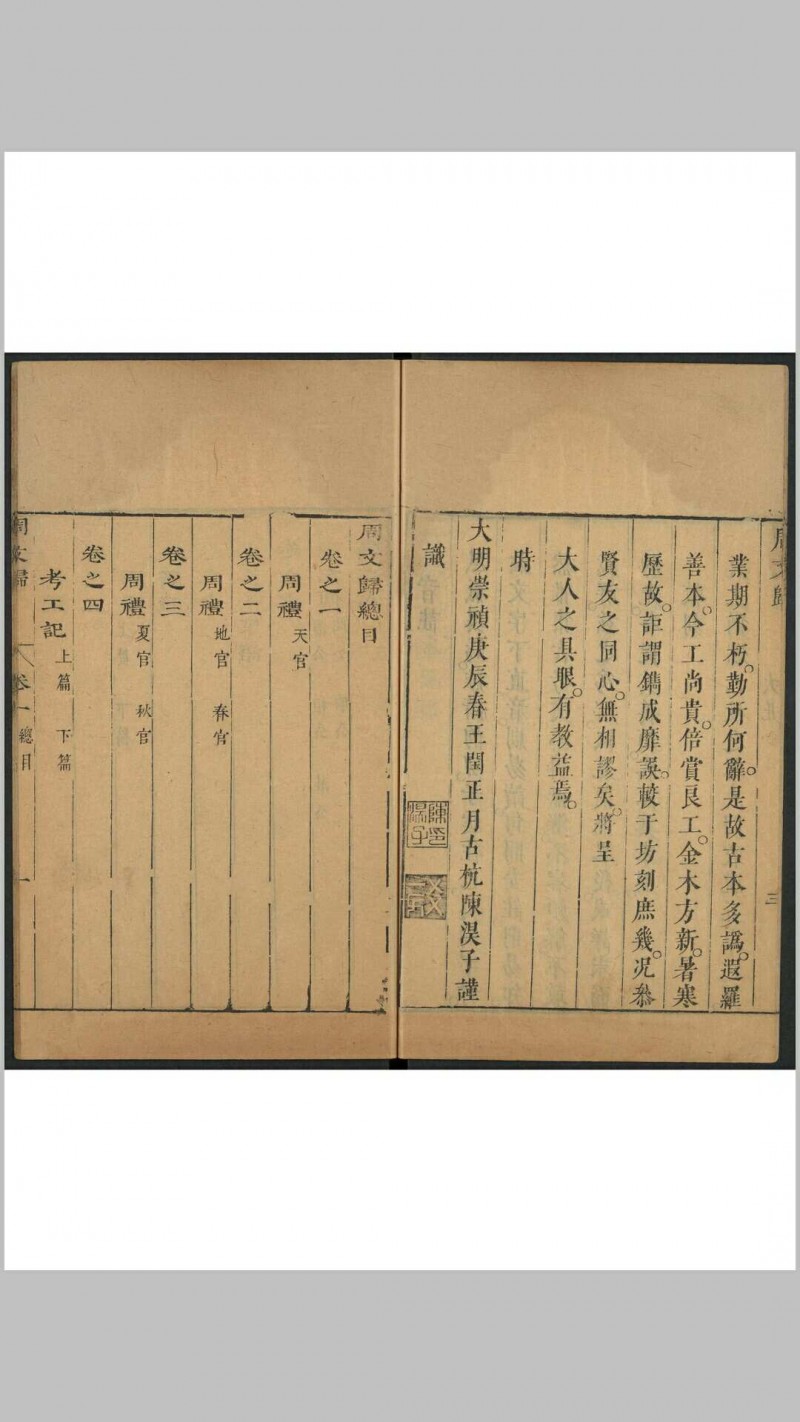 周文歸
三
業期不朽。勤所何辭。是故古本多譌。遐羅
善本。今工尚貴。倍賞良工。金木方新。暑寒
歷故。詎謂鐫成靡誤。較于坊刻庶幾。况叅
賢友之同心。無相謬矣。將呈
大人之具眼。有教益焉。
時
大明崇禎庚辰春王閏正月古杭陳淏子謹
識
陳淏子印
周文歸總目
卷之一
周禮 天官
卷之二
周禮 地官 春官
卷之三
周禮 夏官 秋官
卷之四
考工記 上篇 下篇
周文歸 卷一 總目 一